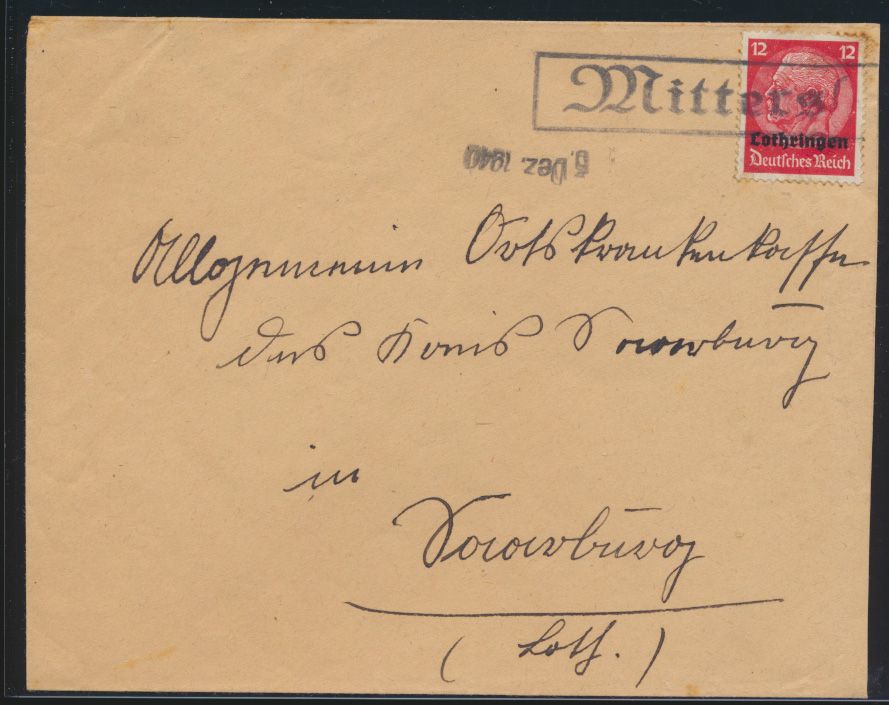 12 12
Mitters
Lothringen
Deutsches Reich
5. Dez. 1940
Allgemeine Ortskrankenkasse
des Kreis Saarburg
in
Saarburg
(Loth.)